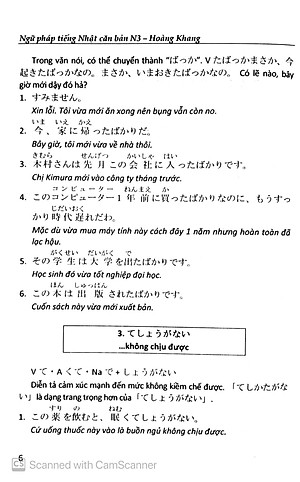 Ngữ pháp tiếng Nhật căn bản N3 – Hoàng Khang
Trong văn nói, có thể chuyển thành "ばっか". V たばっかまさか、今
起きたばっかなの。まさか、いまおきたばっかなの。 Có lẽ nào, bây
giờ mới dậy đó hả?
1. すみません。
Xin lỗi. Tôi vừa mới ăn xong nên bụng vẫn còn no.
いま いえ かえ
2. 今、家に帰ったばかりだ。
Bây giờ, tôi mới vừa về nhà thôi.
きむら せんげつ かいしゃ はい
3. 木村さんは先月この会社に入ったばかりです。
Chị Kimura mới vào công ty tháng trước.
コンピューター ねんまえ か
4. このコンピューター1年前に買ったばかりなのに、もうすっ
じだいおく
かり時代遅れだわ。
Mặc dù vừa mua máy tính này cách đây 1 năm nhưng hoàn toàn đã
lạc hậu.
がくせい だいがく で
5. その学生は大学を出たばかりです。
Học sinh đó vừa tốt nghiệp đại học.
ほん しゅっぱん
6. この本は出版されたばかりです。
Cuốn sách này vừa mới xuất bản.
3. てしょうがない
...không chịu được
V て・A くて・Na で + しょうがない
Diễn tả cảm xúc mạnh đến mức không kiềm chế được. 「てしかたがな
い」là dạng trang trọng hơn của「てしょうがない」.
すり の ねむ
1. この薬を飲むと、眠くてしょうがない。
Cứ uống thuốc này vào là buồn ngủ không chịu được.
6
CS Scanned with CamScanner